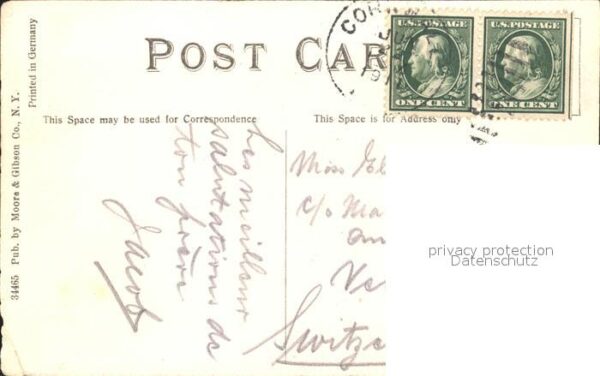 POST CAR
COR
U.S. POSTAGE
ONE CENT
U.S. POSTAGE
ONE CENT
Printed in Germany
34465 Pub. by Moore & Gibson Co., N. Y.
This Space may be used for Correspondence
This Space is for Address only
Les meilleur
salutations de
ton frère
Jacob
Miss El
c/o Ma
Ve
Switze
privacy protection
Datenschutz